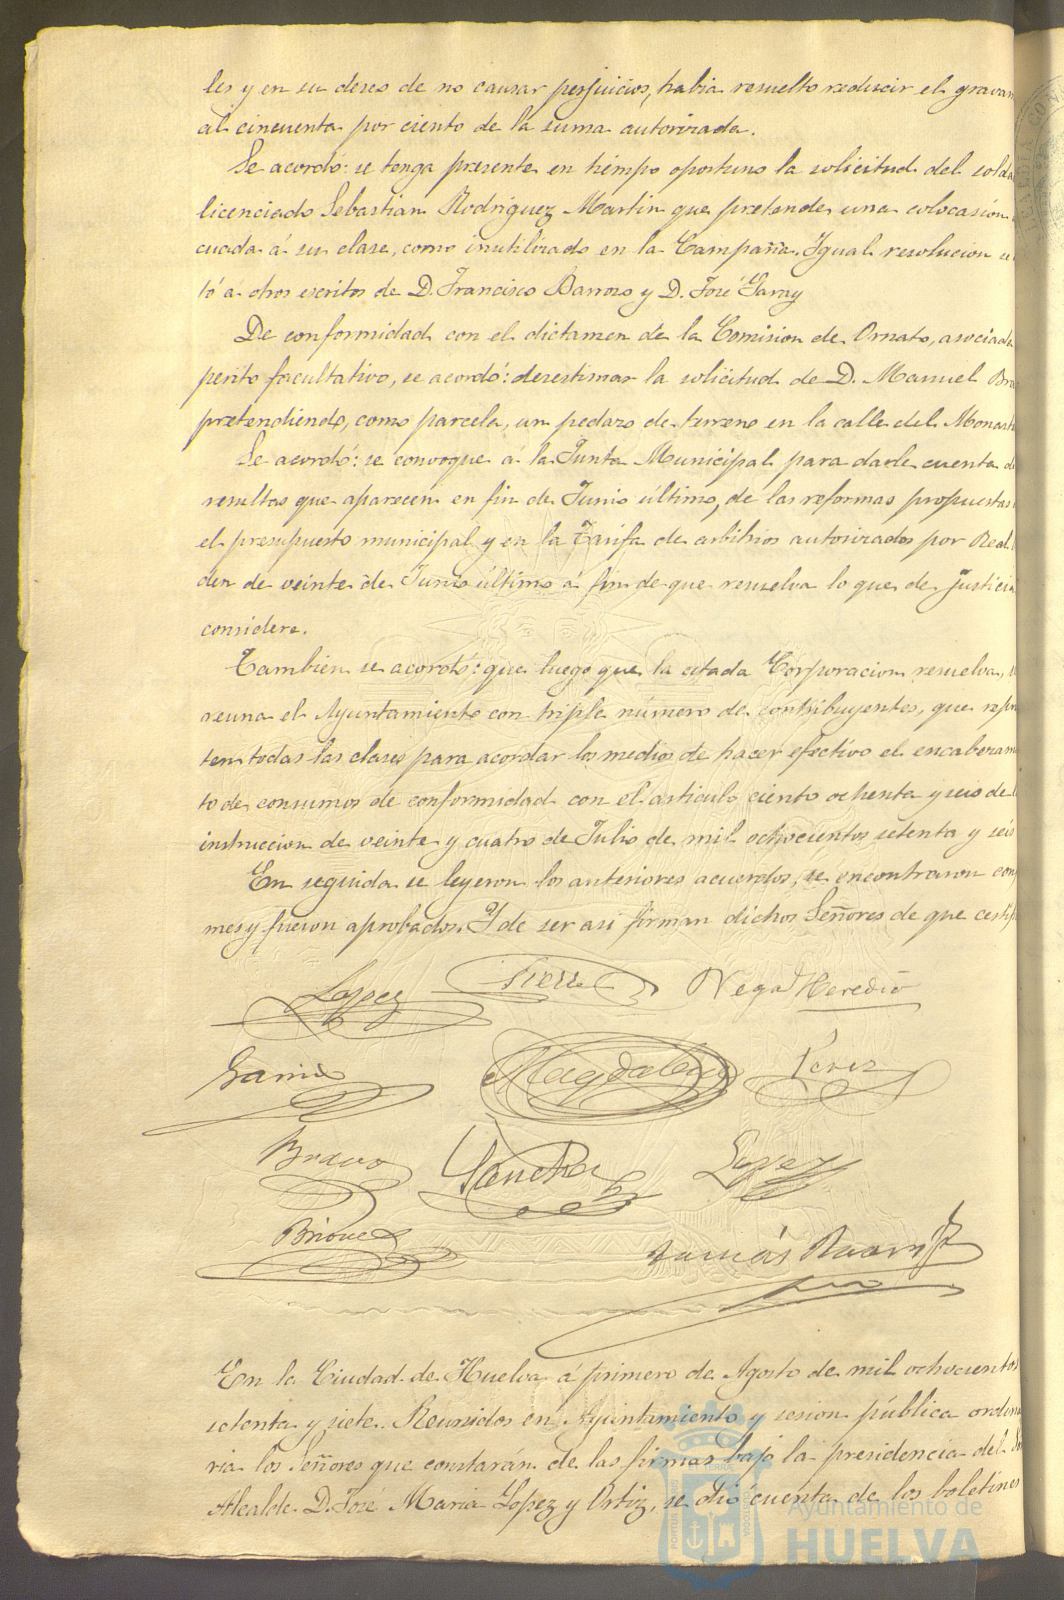 les y en su deseo de no causar perjuicios, habia resuelto reducir el gravam
al cincuenta por ciento de la suma autorizada.
Se acordó: se tenga presente en tiempo oportuno la solicitud del solda
licenciado Sebastian Rodriguez Martin que pretende una colocasión
cuada á su clase, como inutilizado en la Campaña. Igual resolucion
tó á otros escritos de D. Francisco Barroso y D. José Garay
De conformidad con el dictamen de la Comision de Ornato, asociada
perito facultativo, se acordó: desestimar la solicitud de D. Manuel Bra
pretendiendo, como parcela, un pedazo de terreno en la calle del Monast
Se acordó: se convoque á la Junta Municipal para darle cuenta de
resultas que aparecen en fin de Junio último, de las reformas propuestas
el presupuesto municipal y en la Tarifa de arbitrios autorizados por Real
den de veinte de Junio último á fin de que resuelva lo que de justicia
considere.
Tambien se acordó: que luego que la citada Corporacion resuelva, s
reuna el Ayuntamiento con triple número de contribuyentes, que repre
ten todas las clases para acordar los medios de hacer efectivo el encabezam
to de consumos de conformidad con el articulo ciento ochenta y seis de l
instruccion de veinte y cuatro de Julio de mil ochocientos setenta y seis
En seguida se leyeron los anteriores acuerdos, se encontraron con
mes y fueron aprobados. Y de ser asi firman dichos Señores de que certif
Lopez Vega Heredió
Garcia Magdalena Perez
Bravo Sanchez Lopez
Tomás
En la Ciudad de Huelva á primero de Agosto de mil ochocientos
setenta y siete. Reunidos en Ayuntamiento y sesion pública ordina
ria los Señores que constarán de las firmas bajo la presidencia del Sr
Alcalde D. José Maria Lopez y Ortiz, se dió cuenta de los boletines
Ayuntamiento de
HUELVA